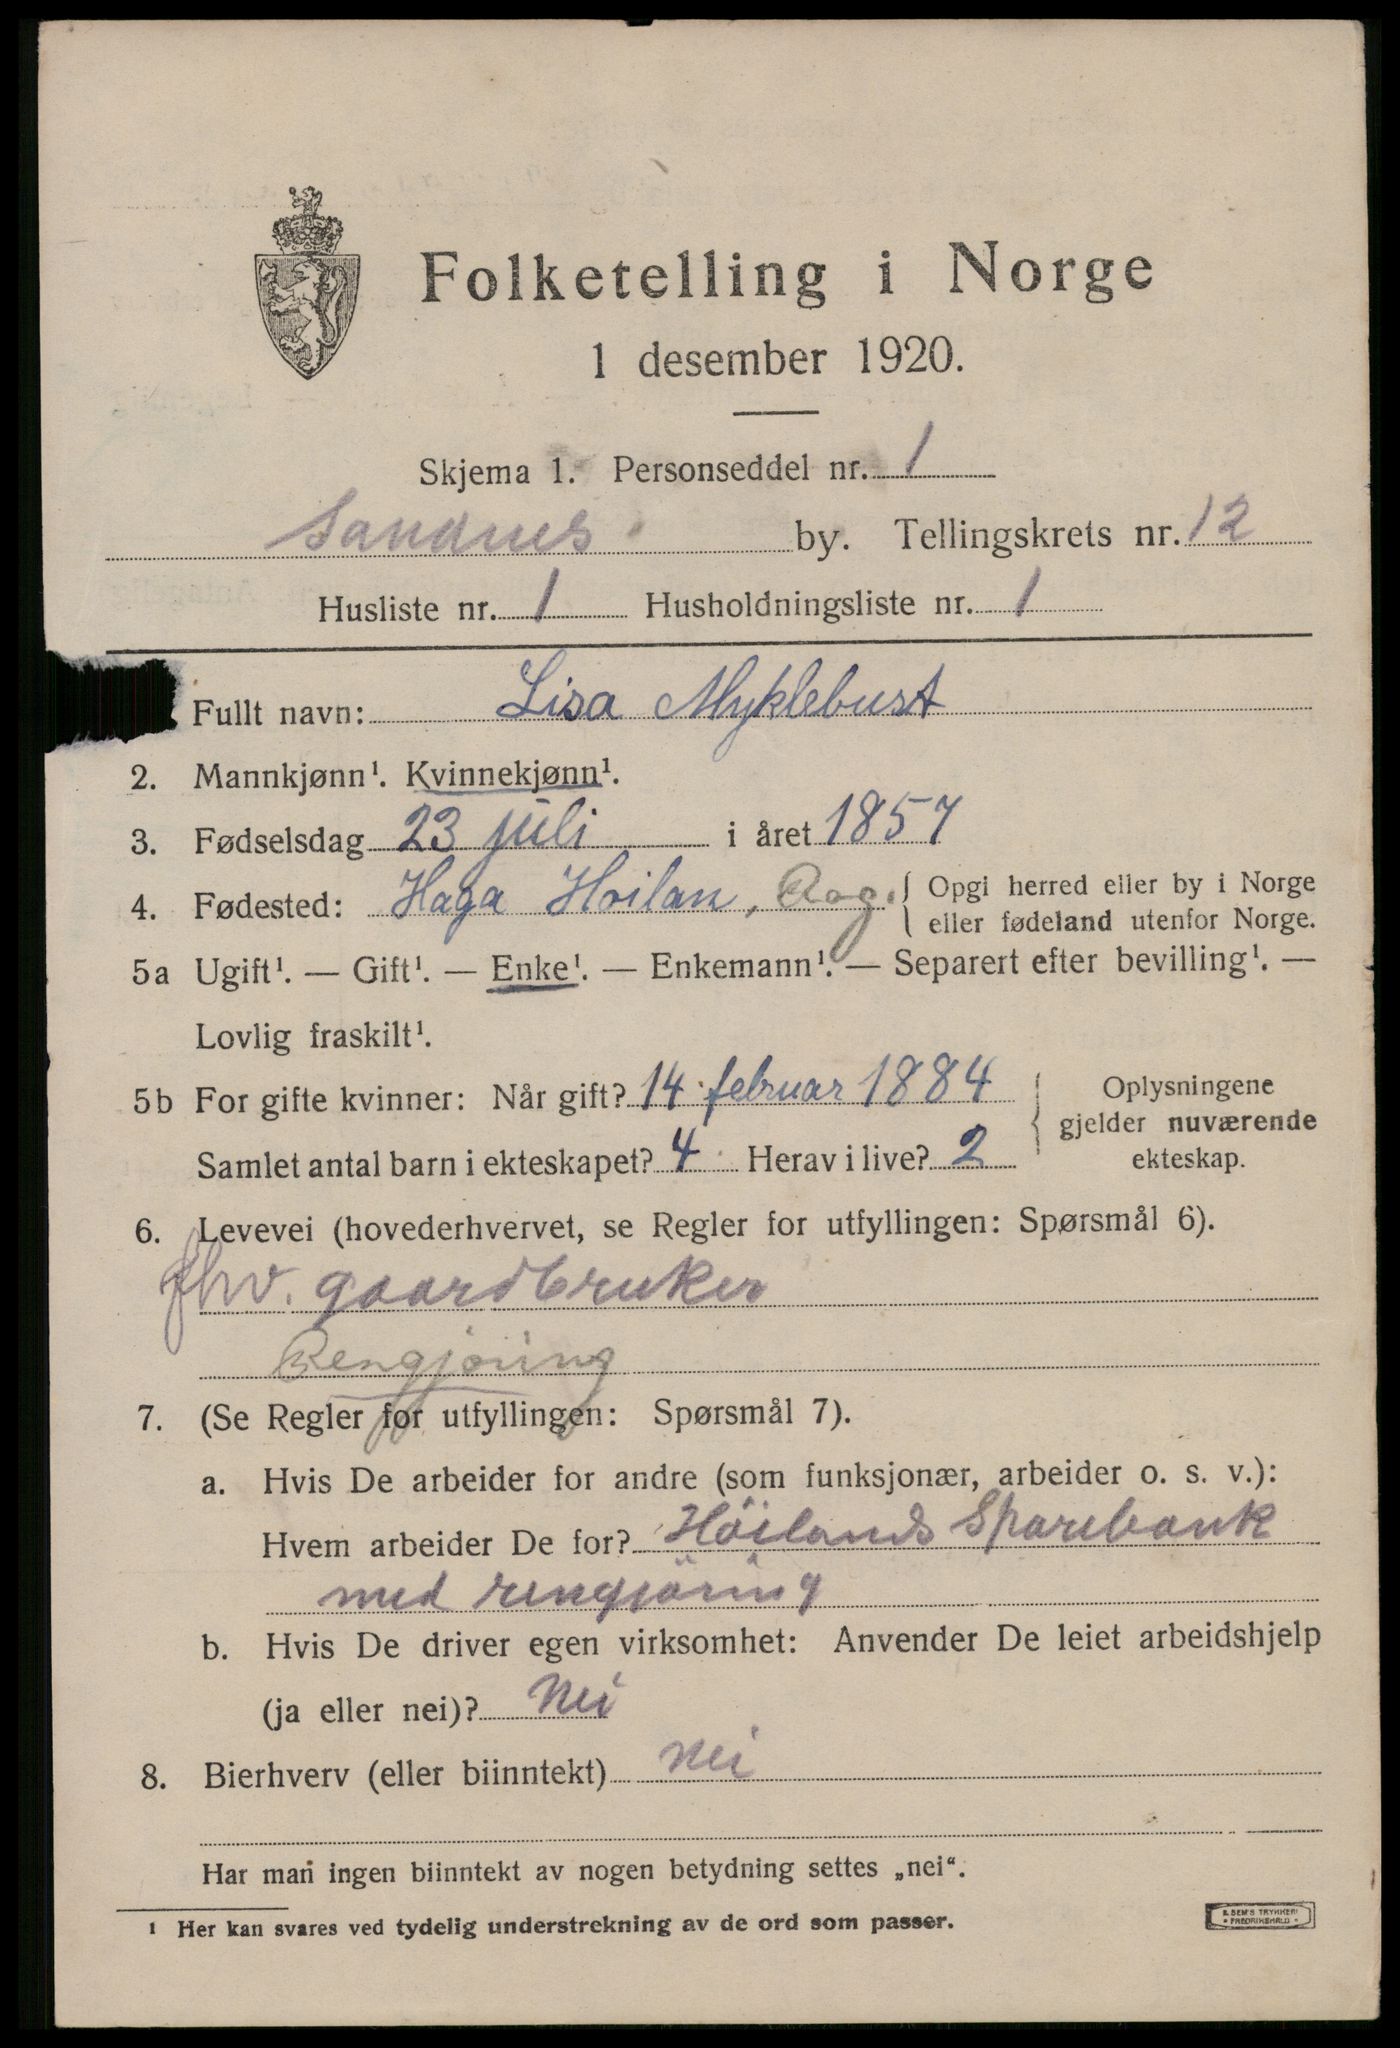 Folketelling i Norge
1 desember 1920.
Skjema 1. Personseddel nr. 1
Sandnes by. Tellingskrets nr. 12
Husliste nr. 1 Husholdningsliste nr. 1
Fullt navn: Lisa Myklebust
2. Mannkjønn¹. Kvinnekjønn¹.
3. Fødselsdag 23 juli i året 1857
4. Fødested: Haga Hoilan, Rog. { Opgi herred eller by i Norge
eller fødeland utenfor Norge.
5a Ugift¹. — Gift¹. — Enke¹. — Enkemann¹. — Separert efter bevilling¹. —
Lovlig fraskilt¹.
5b For gifte kvinner: Når gift? 14 februar 1884
Samlet antal barn i ekteskapet? 4 Herav i live? 2
Oplysningene
gjelder nuværende
ekteskap.
6. Levevei (hovederhvervet, se Regler for utfyllingen: Spørsmål 6).
fhv. gaardbruker
Rengjöring
7. (Se Regler for utfyllingen: Spørsmål 7).
a. Hvis De arbeider for andre (som funksjonær, arbeider o. s. v.):
Hvem arbeider De for? Höilands Sparebank
med rengjöring
b. Hvis De driver egen virksomhet: Anvender De leiet arbeidshjelp
(ja eller nei)? Nei
8. Bierhverv (eller biinntekt) Nei
Har man ingen biinntekt av nogen betydning settes „nei“.
¹ Her kan svares ved tydelig understrekning av de ord som passer.
E. SEM'S TRYKKERI
FREDRIKSHALD